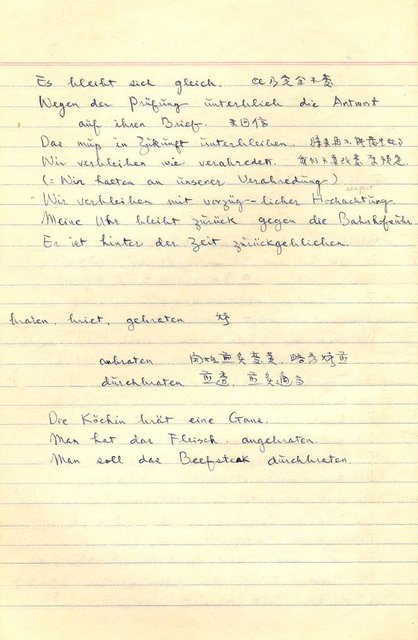 Es bleibt sich gleich. 此乃完全不變
Wegen der Prüfung unterblieb die Antwort
auf ihren Brief. 未回信
Das muß in Zukunft unterbleiben.
Wir verbleiben wie verabredet.
(= Wir halten an unserer Verabredung)
Wir verbleiben mit vorzüg-licher Hochachtung
Meine Uhr bleibt zurück gegen die Bahnhofsuhr.
Er ist hinter der Zeit zurückgeblieben.
braten, briet, gebraten 烤
anbraten
durchbraten 煎透
Die Köchin brät eine Gans.
Man hat das Fleisch angebraten.
Man soll das Beefsteak durchbraten.